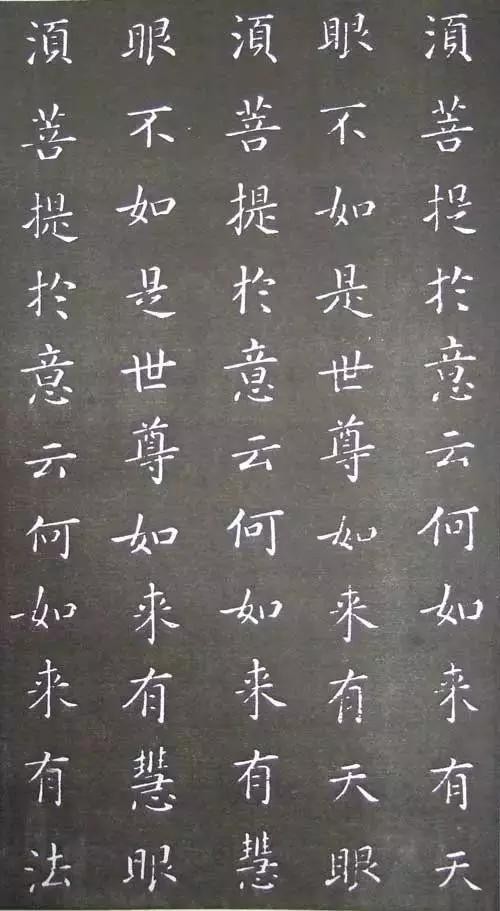 須菩提於意云何如来有天
眼不如是世尊如来有天眼
須菩提於意云何如来有慧
眼不如是世尊如来有慧眼
須菩提於意云何如来有法